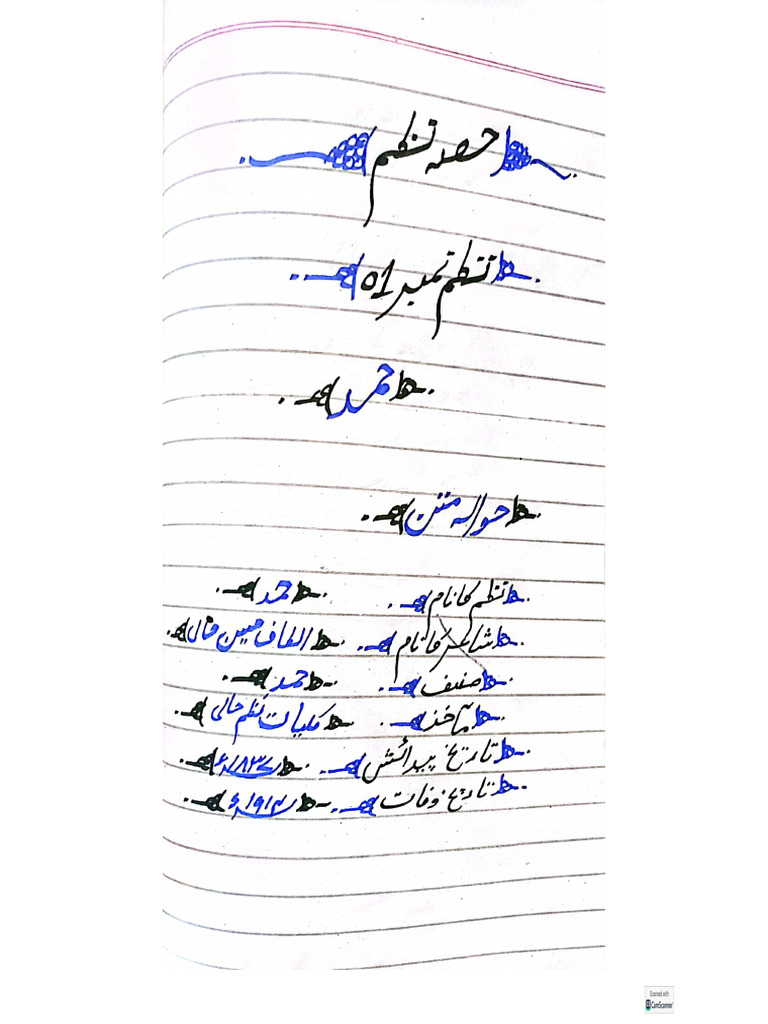 حصہ نظم
نظم نمبر 01
حمد
حوالہ متن
نظم کا نام حمد
شاعر کا نام الطاف حسین حالی
صنف حمد
ماخذ کلیات نظم حالی
تاریخ پیدائش ۱۸۳۷ء
تاریخ وفات ۱۹۱۴ء
Scanned with
CamScanner